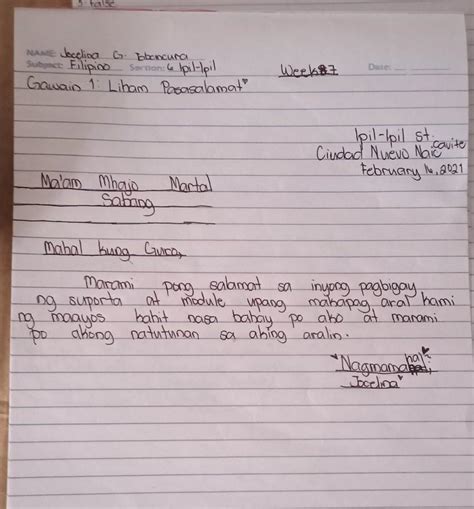 3. False
NAME: Jocelina G. Ibancura
Subject: Filipino Section: 6 Ipil-Ipil Week 7 Date:
Gawain 1: Liham Pasasalamat
Ipil-Ipil St.
Ciudad Nuevo Naic Cavite
February 16, 2021
Ma'am Mhajo Martal
Sabang
Mahal kung Guro,
Marami pong salamat sa inyong pagbigay
ng suporta at module upang makapag aral kami
ng maayos kahit nasa bahay po ako at marami
po akong natutunan sa aking aralin.
"Nagmamahal,
Jocelina"